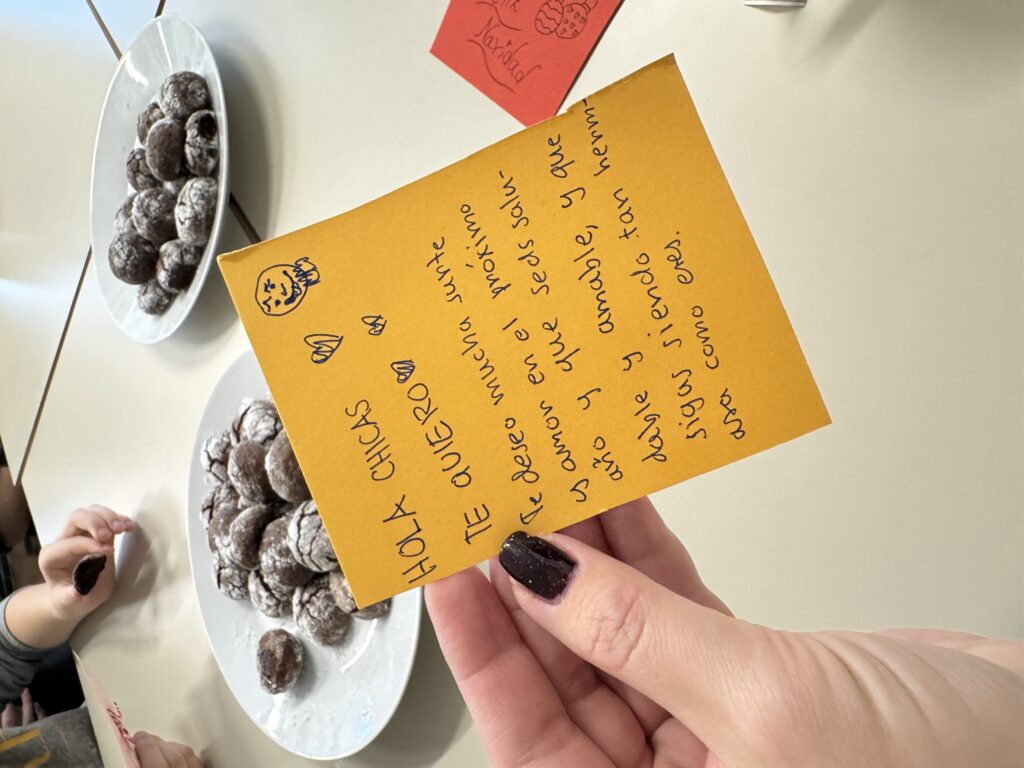 HOLA CHICAS
TE QUIERO
Te deseo mucha surte
y amor en el próximo
año y que seas salu-
dable y amable, y que
sigas siendo tan herm-
osa como eres.
Navidad